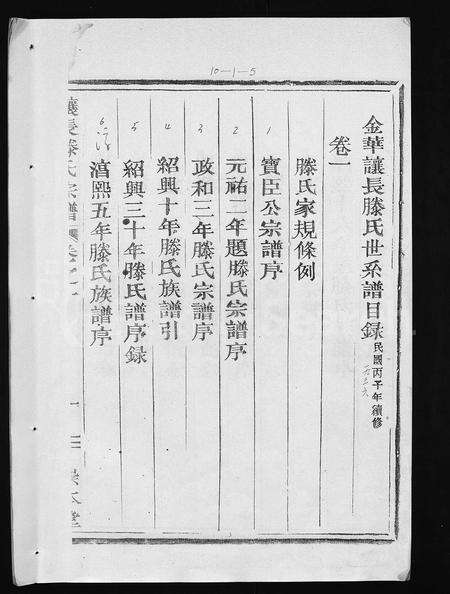 10-1-5
金華讓長滕氏世系譜目錄 民國丙子年續修
一九三六
卷一
滕氏家規條例
1
寶臣公宗譜序
2
元祐二年題滕氏宗譜序
3
政和三年滕氏宗譜序
4
紹興十年滕氏族譜引
5
紹興三十年滕氏譜序錄
6
淳熙五年滕氏族譜序
讓長滕氏宗譜 卷之一